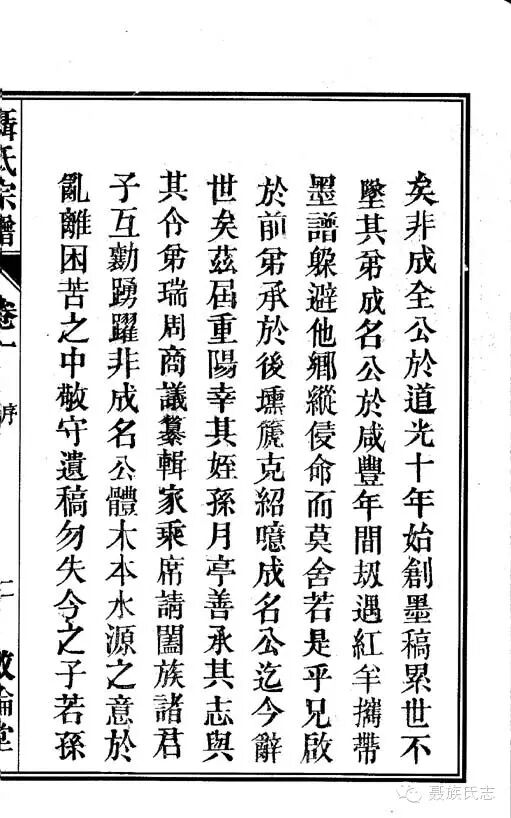 矣非成全公於道光十年始創墨稿累世不
墜其弟成名公於咸豐年間刼遇紅羊攜帶
墨譜躲避他鄉縱侵命而莫舍若是乎兄啟
於前弟承於後壎篪克紹噫成名公迄今辭
世矣茲屆重陽幸其姪孫月亭善承其志與
其令弟瑞周商議纂輯家乘席請闔族諸君
子互勷踴躍非成名公體木本水源之意於
亂離困苦之中敬守遺稿勿失今之子若孫
聶氏宗譜 卷一 序 二 敦倫堂
聂族氏志